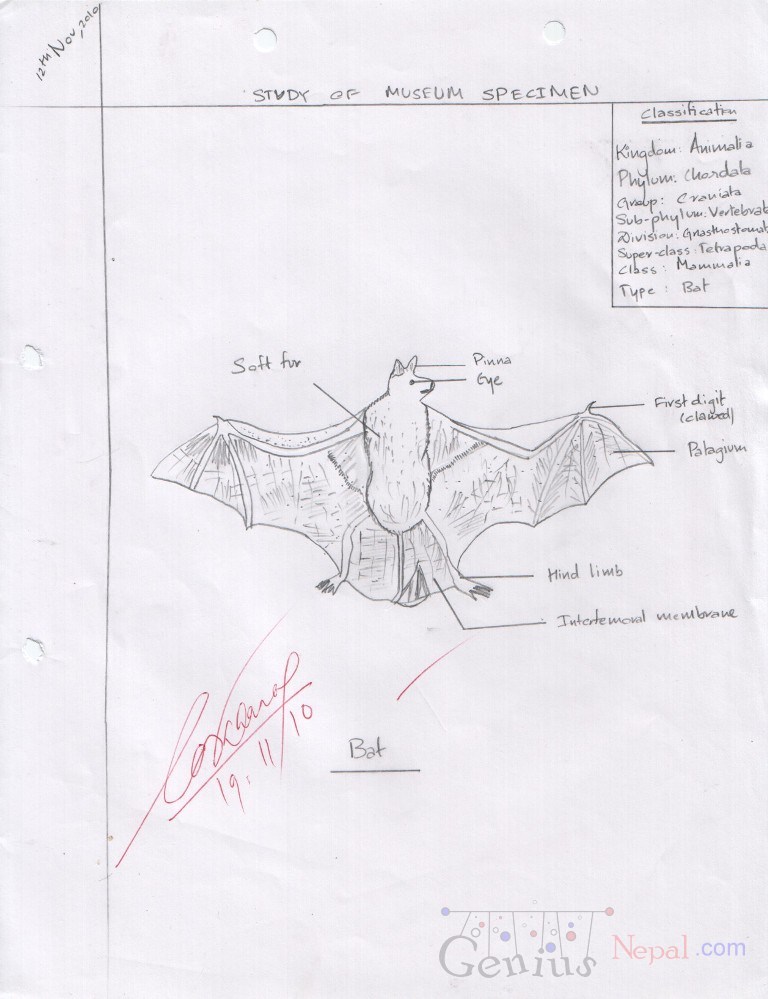 12th Nov, 2010
STUDY OF MUSEUM SPECIMEN
Classification
Kingdom: Animalia
Phylum: Chordata
Group: Craniata
Sub-phylum: Vertebrat
Division: Gnasthostomat
Super-class: Tetrapoda
Class: Mammalia
Type: Bat
Soft fur
Pinna
Eye
First digit
(clawed)
Patagium
Hind limb
Interfemoral membrane
19.11/10
Bat
Genius Nepal.com